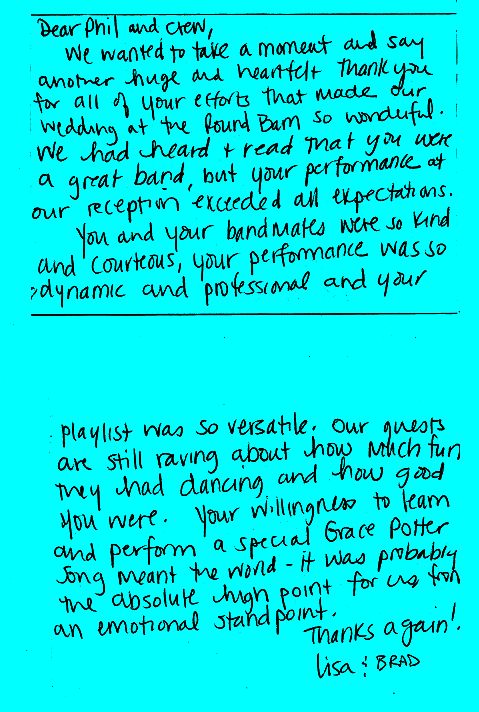 Dear Phil and crew,
We wanted to take a moment and say
another huge and heartfelt Thank you
for all of your efforts that made our
wedding at the Round Barn so wonderful.
We had heard + read that you were
a great band, but your performance at
our reception exceeded all expectations.
You and your bandmates were so kind
and courteous, your performance was so
dynamic and professional and your
playlist was so versatile. Our guests
are still raving about how much fun
they had dancing and how good
you were. Your willingness to learn
and perform a special Grace Potter
song meant the world - it was probably
the absolute high point for us from
an emotional standpoint.
Thanks again!
Lisa & BRAD